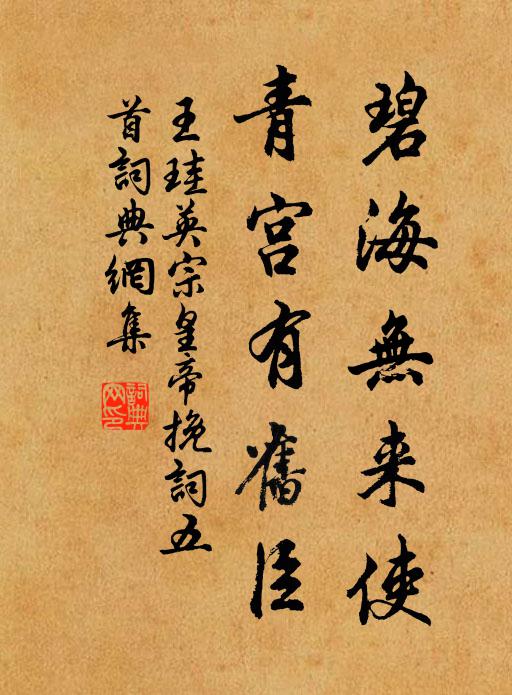 碧海無来使
青宫有舊臣
王珪英宗皇帝挽詞五
首詞典網集
詞典网印